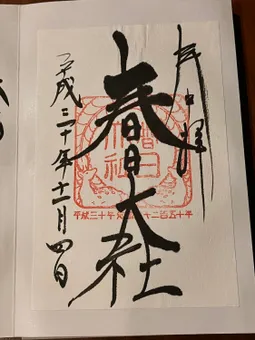 奉拝
春日大社
春日大社
平成三十年 千二百五十年
平成三十年十一月四日